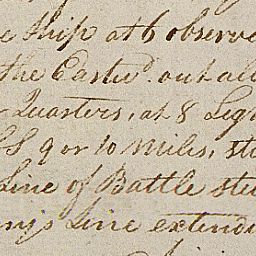 e Ship at 6 observe
the Eastwd. out all
Quarters, at 8 Lig
9 or 10 Miles, sta
Line of Battle ste
my's Line extendi